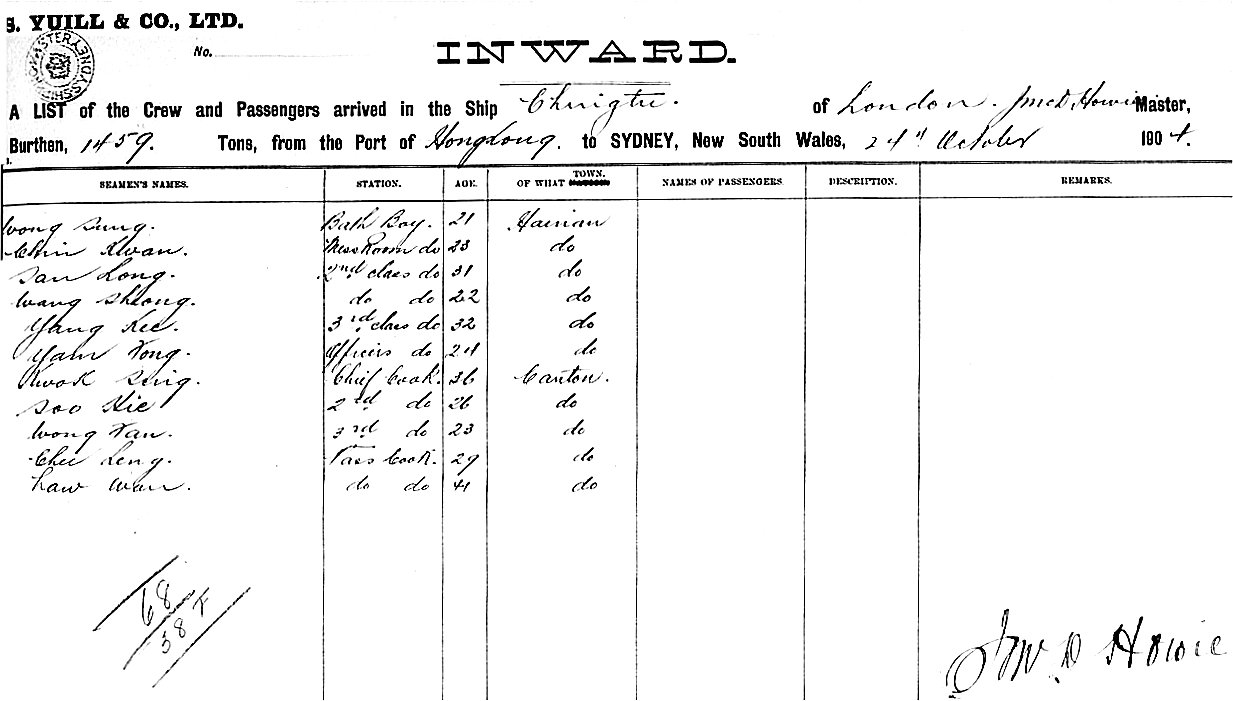 S. YUILL & CO., LTD.
No.
INWARD.
A LIST of the Crew and Passengers arrived in the Ship Chingtu. of London. Howie Master,
Burthen, 1459. Tons, from the Port of Hongkong. to SYDNEY, New South Wales, 24th October 1904.
SEAMEN'S NAMES. STATION. AGE. OF WHAT TOWN. NAMES OF PASSENGERS. DESCRIPTION. REMARKS.
Wong Sung. Bath Boy. 21 Hainan
Chin Kwan. Mess Room do 23 do
San Long. 2nd class do 31 do
Wang Sheong. do do 22 do
Yang Kee. 3rd class do 32 do
Yam Tong. Officers do 24 do
Kwok Sing. Chief Cook. 36 Canton.
Soo Kie 2nd do 26 do
Wong Tan. 3rd do 23 do
Chee Leng. Pass Cook. 29 do
Law Wan. do do 41 do
68
58
Howie